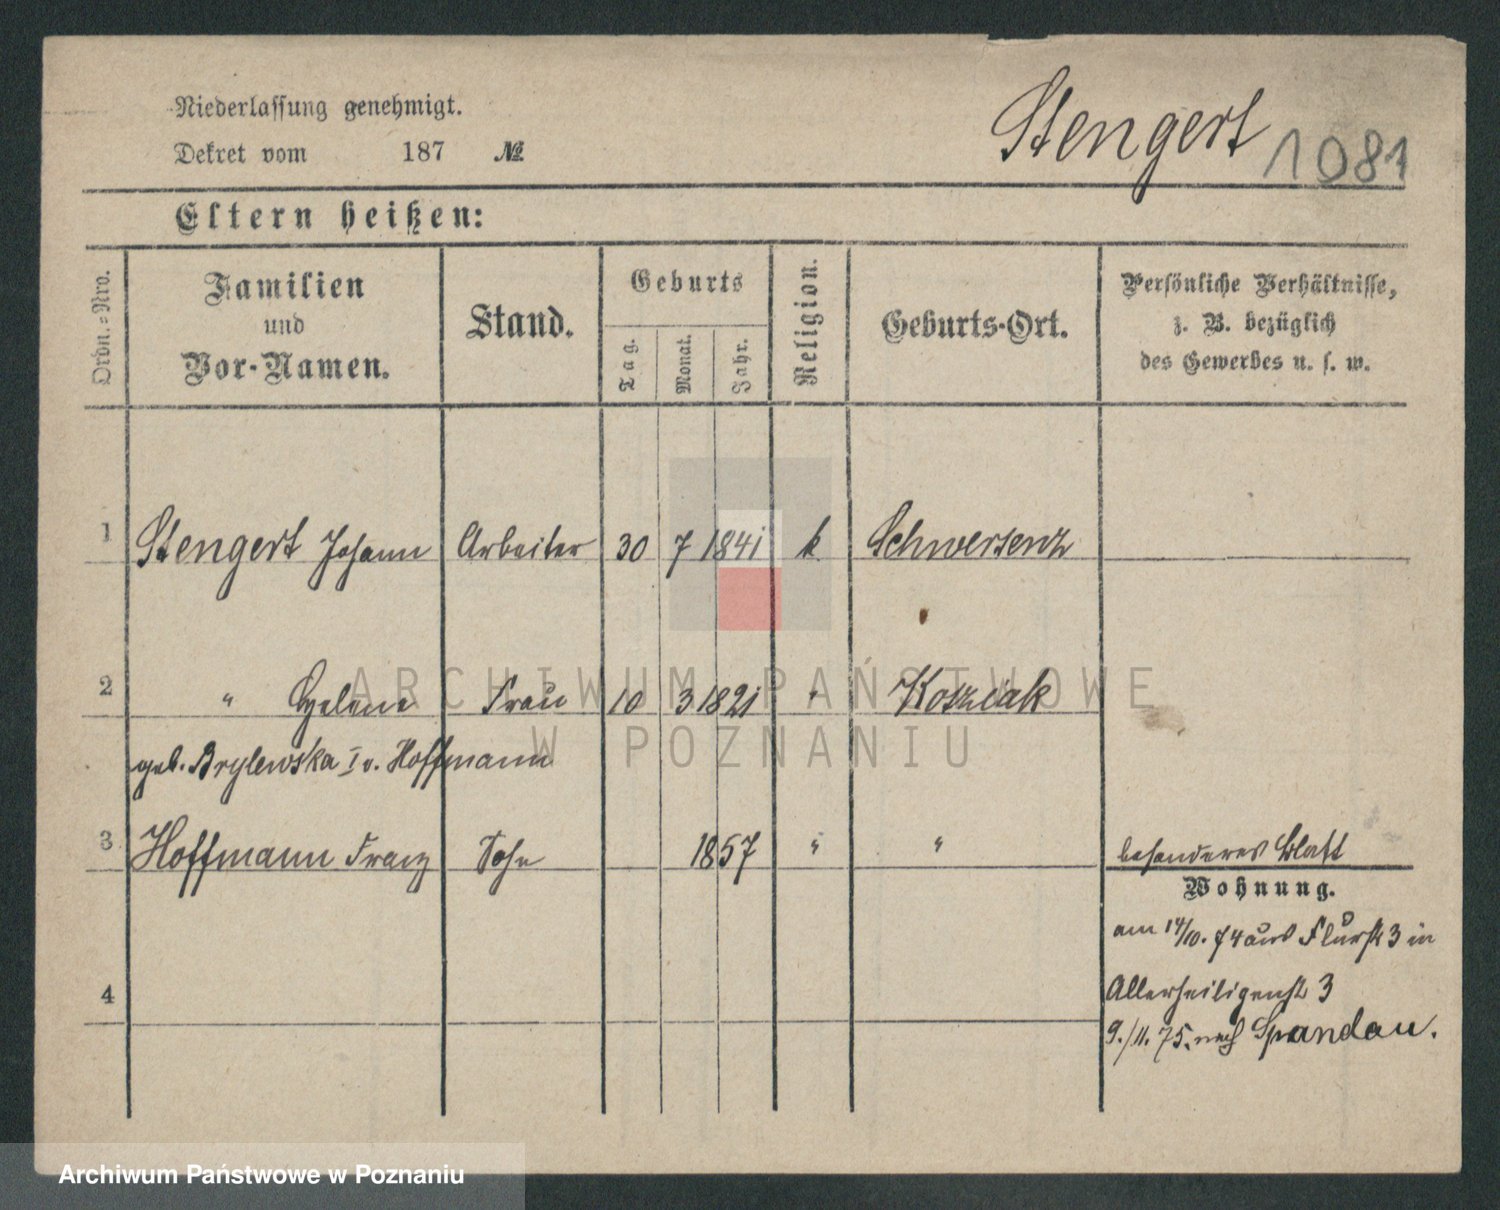 Niederlassung genehmigt.
Dekret vom 187 №
Stengert 1081
Eltern heißen:
Ordn.-Nro.
Familien
und
Vor-Namen.
Stand.
Geburts
Tag.
Monat.
Jahr.
Religion.
Geburts-Ort.
Persönliche Verhältnisse,
z. B. bezüglich
des Gewerbes u. s. w.
1 Stengert Johann Arbeiter 30 7 1841 k Schwersenz
2 " Helene Frau 10 3 1821 " Koszciak
geb. Brylewska I v. Hoffmann
3 Hoffmann Franz Sohn 1857 " " besonderes Blatt
Wohnung.
am 14/10. 74 aus Flurstr 3 in
4 Allerheiligenstr 3
9./11. 75. nach Spandau.
ARCHIWUM PAŃSTWOWE
W POZNANIU
Archiwum Państwowe w Poznaniu